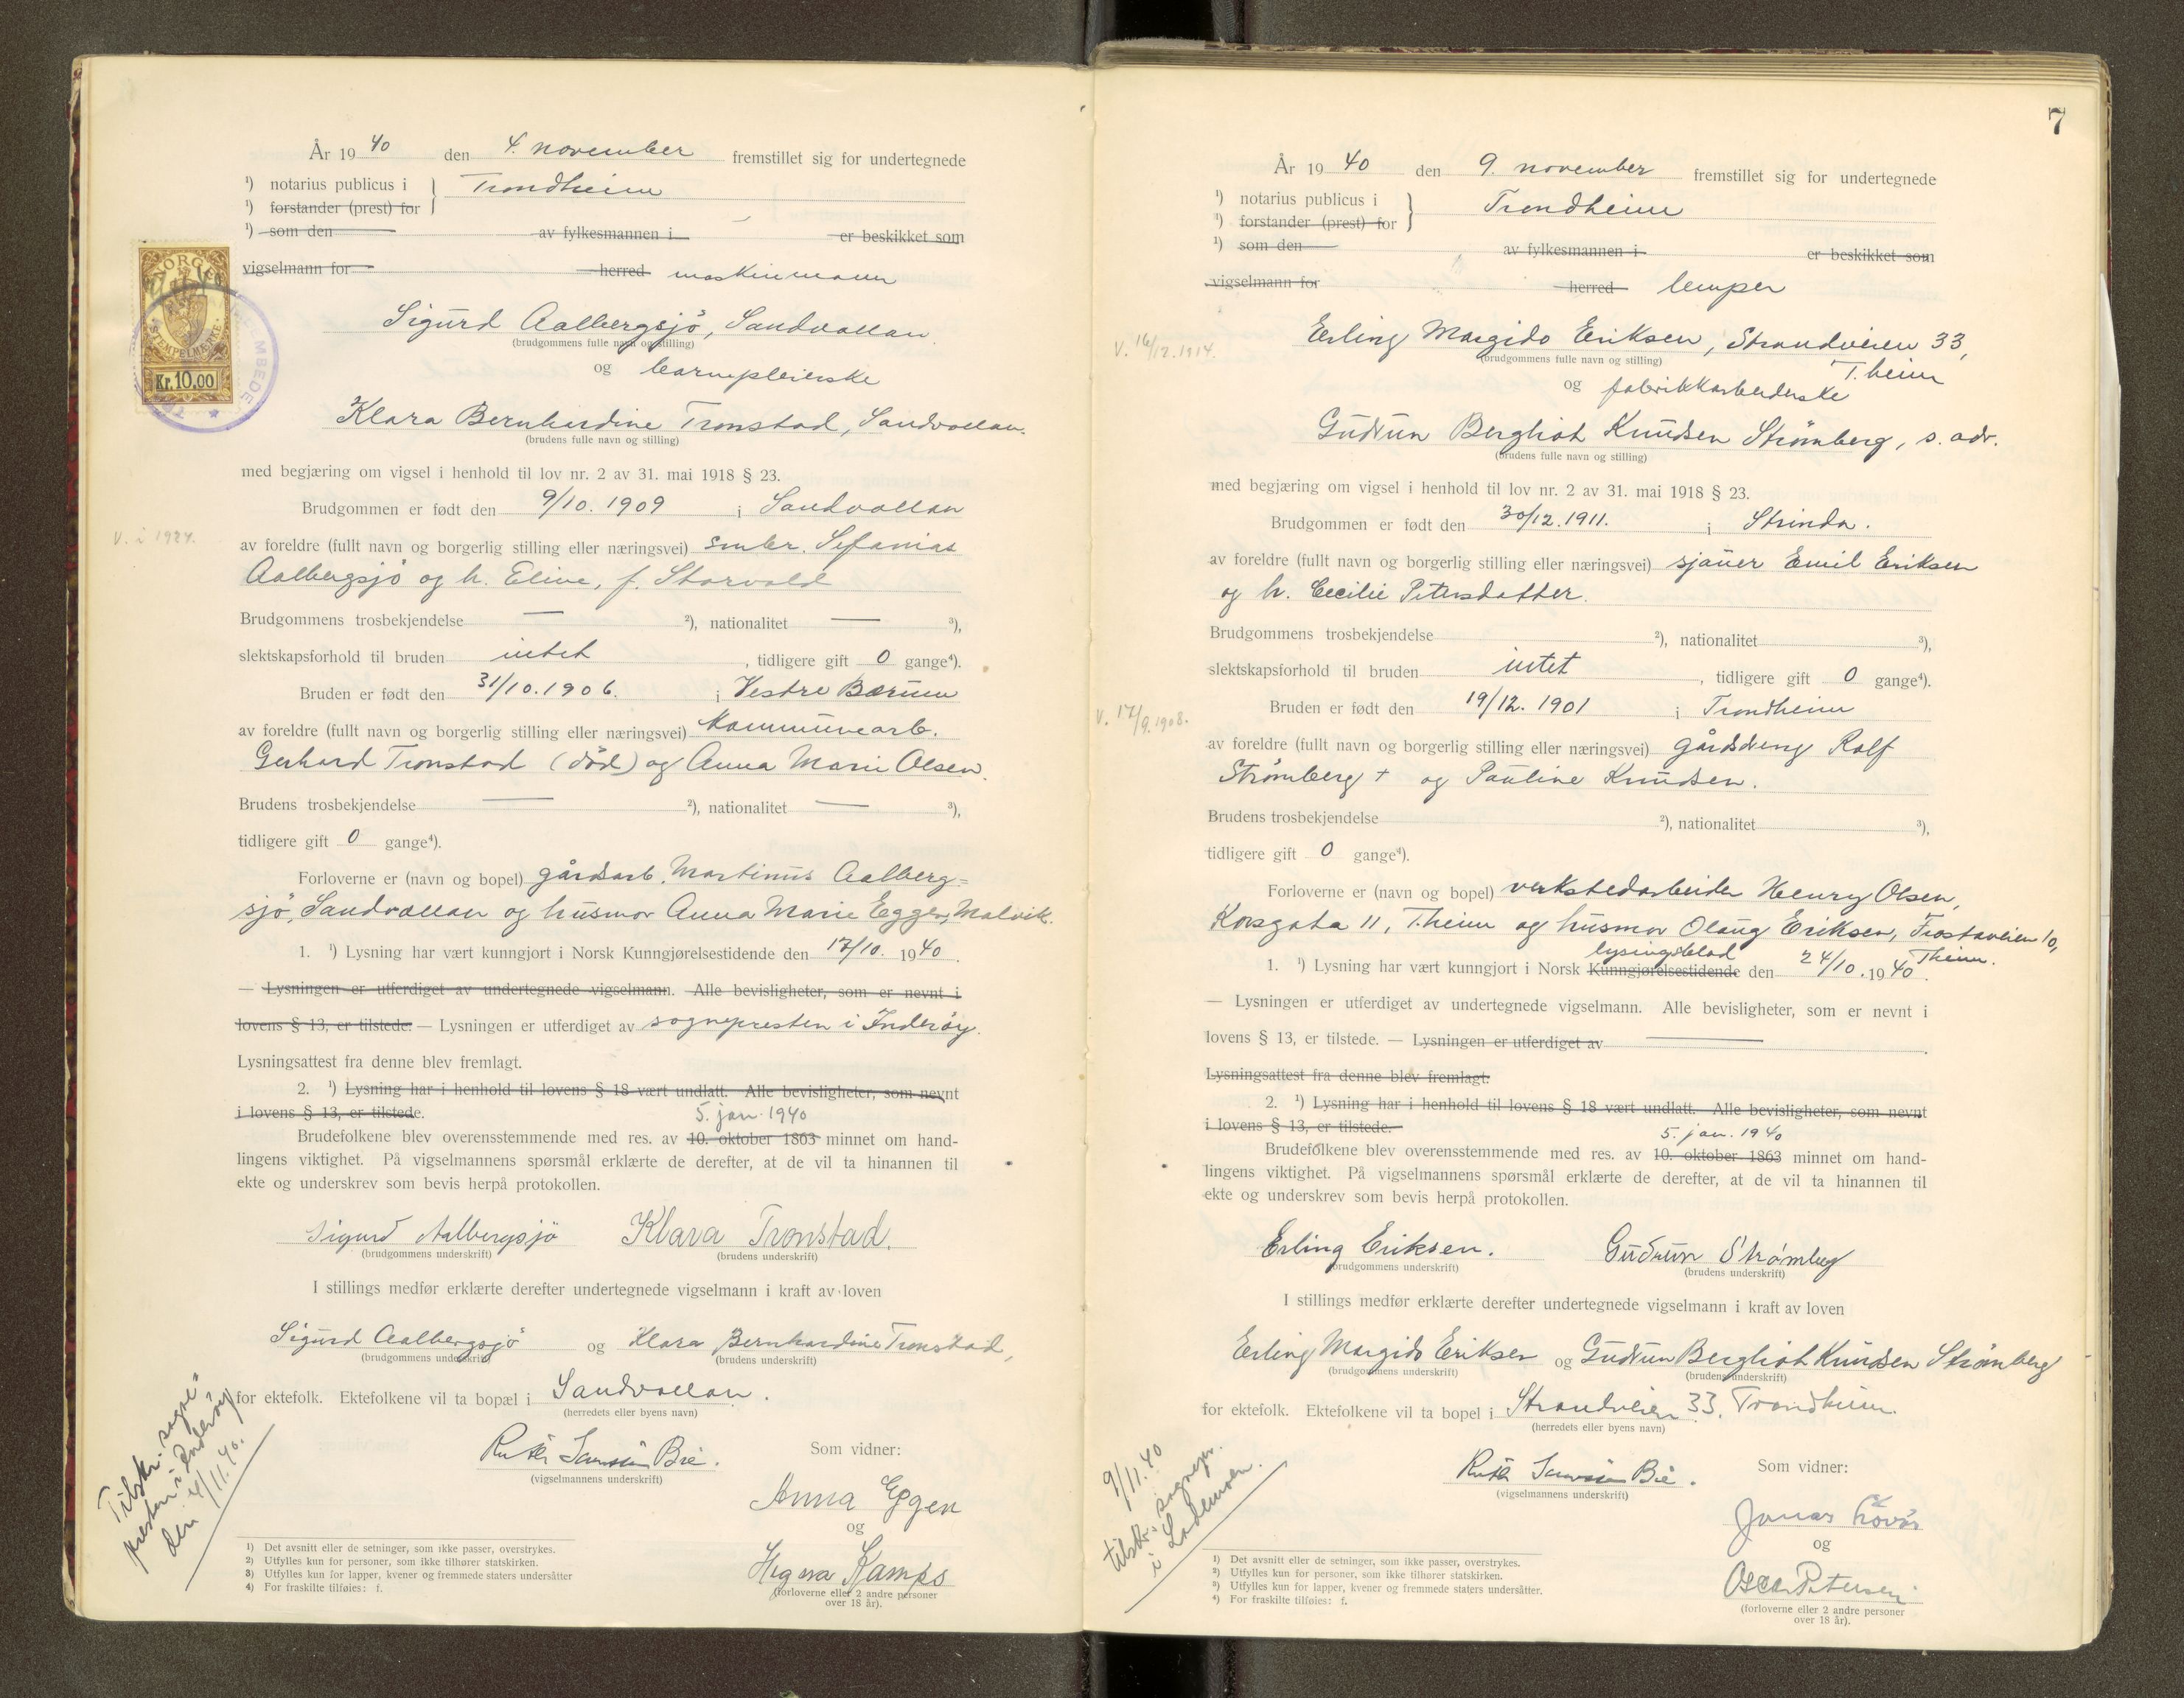 År 1940 den 4. november fremstillet sig for undertegnede
¹) notarius publicus i } Trondheim
¹) forstander (prest) for
¹) som den av fylkesmannen i er beskikket som
vigselmann for herred maskinmann
NORGE
STEMPELMERKE
Kr. 10.00
Sigurd Aalbergsjö, Sandvollan.
(brudgommens fulle navn og stilling)
og barnepleierske
Klara Bernhardine Tronstad, Sandvollan.
(brudens fulle navn og stilling)
med begjæring om vigsel i henhold til lov nr. 2 av 31. mai 1918 § 23.
Brudgommen er født den 9/10. 1909 i Sandvollan
V. i 1924.
av foreldre (fullt navn og borgerlig stilling eller næringsvei) småbr. Sefanias
Aalbergsjö og h. Eline, f. Storvold
Brudgommens trosbekjendelse — ²), nationalitet — ³),
slektskapsforhold til bruden intet, tidligere gift 0 gange⁴).
Bruden er født den 31/10. 1906. i Vestre Bærum
av foreldre (fullt navn og borgerlig stilling eller næringsvei) kommunearb.
Gerhard Tronstad (död) og Anna Marie Olsen.
Brudens trosbekjendelse — ²), nationalitet — ³),
tidligere gift 0 gange⁴).
Forloverne er (navn og bopel) gårdsarb. Martinus Aalberg=
sjö, Sandvollan og husmor Anna Marie Eggen, Malvik.
1. ¹) Lysning har vært kunngjort i Norsk Kunngjørelsestidende den 17/10. 1940.
— Lysningen er utferdiget av undertegnede vigselmann. Alle bevisligheter, som er nevnt i
lovens § 13, er tilstede. — Lysningen er utferdiget av sognepresten i Inderöy.
Lysningsattest fra denne blev fremlagt.
2. ¹) Lysning har i henhold til lovens § 18 vært undlatt. Alle bevisligheter, som nevnt
i lovens § 13, er tilstede.
5. jan. 1940
Brudefolkene blev overensstemmende med res. av 10. oktober 1863 minnet om hand-
lingens viktighet. På vigselmannens spørsmål erklærte de derefter, at de vil ta hinannen til
ekte og underskrev som bevis herpå protokollen.
Sigurd Aalbergsjö Klara Tronstad.
(brudgommens underskrift) (brudens underskrift)
I stillings medfør erklærte derefter undertegnede vigselmann i kraft av loven
Sigurd Aalbergsjö og Klara Bernhardine Tronstad,
(brudgommens underskrift) (brudens underskrift)
for ektefolk. Ektefolkene vil ta bopæl i Sandvollan.
(herredets eller byens navn)
Tilskr. sogne-
presten i Inderöy
den 4/11. 40.
Som vidner:
(vigselmannens underskrift)
Anna Eggen
og
Kamps
(forloverne eller 2 andre personer
over 18 år).
1) Det avsnitt eller de setninger, som ikke passer, overstrykes.
2) Utfylles kun for personer, som ikke tilhører statskirken.
3) Utfylles kun for lapper, kvener og fremmede staters undersåtter
4) For fraskilte tilføies: f.
7
År 1940 den 9. november fremstillet sig for undertegnede
¹) notarius publicus i } Trondheim
¹) forstander (prest) for
¹) som den av fylkesmannen i er beskikket som
vigselmann for herred lemper
V. 16/12. 1914.
Erling Margido Eriksen, Strandveien 33,
(brudgommens fulle navn og stilling)
T.heim
og fabrikkarbeiderske
Gudrun Bergliot Knudsen Strömberg, s. adr.
(brudens fulle navn og stilling)
med begjæring om vigsel i henhold til lov nr. 2 av 31. mai 1918 § 23.
Brudgommen er født den 30/12. 1911. i Strinda.
av foreldre (fullt navn og borgerlig stilling eller næringsvei) sjauer Emil Eriksen
og h. Cecilie Petersdatter.
Brudgommens trosbekjendelse ²), nationalitet ³),
slektskapsforhold til bruden intet, tidligere gift 0 gange⁴).
Bruden er født den 19/12. 1901 i Trondheim
V. 17/9. 1908.
av foreldre (fullt navn og borgerlig stilling eller næringsvei) gårdsdreng Rolf
Strömberg + og Pauline Knudsen.
Brudens trosbekjendelse ²), nationalitet ³),
tidligere gift 0 gange⁴).
Forloverne er (navn og bopel) verkstedarbeider Henry Olsen,
Korsgata 11, T.heim og husmor Olaug Eriksen, Frostaveien 10,
T.heim.
lysingsblad
1. ¹) Lysning har vært kunngjort i Norsk Kunngjørelsestidende den 24/10. 1940.
— Lysningen er utferdiget av undertegnede vigselmann. Alle bevisligheter, som er nevnt i
lovens § 13, er tilstede. — Lysningen er utferdiget av — .
Lysningsattest fra denne blev fremlagt.
2. ¹) Lysning har i henhold til lovens § 18 vært undlatt. Alle bevisligheter, som nevnt
i lovens § 13, er tilstede.
5. jan. 1940
Brudefolkene blev overensstemmende med res. av 10. oktober 1863 minnet om hand-
lingens viktighet. På vigselmannens spørsmål erklærte de derefter, at de vil ta hinannen til
ekte og underskrev som bevis herpå protokollen.
Erling Eriksen. Gudrun Strömberg
(brudgommens underskrift) (brudens underskrift)
I stillings medfør erklærte derefter undertegnede vigselmann i kraft av loven
Erling Margido Eriksen og Gudrun Bergliot Knudsen Strömberg
(brudgommens underskrift) (brudens underskrift)
for ektefolk. Ektefolkene vil ta bopel i Strandveien 33. Trondheim.
(herredets eller byens navn)
9/11. 40
tilskr. sognepr.
i Lademoen.
Som vidner:
(vigselmannens underskrift)
Jonas
og
Oscar Petersen
(forloverne eller 2 andre personer
over 18 år).
1) Det avsnitt eller de setninger, som ikke passer, overstrykes.
2) Utfylles kun for personer, som ikke tilhører statskirken.
3) Utfylles kun for lapper, kvener og fremmede staters undersåtter.
4) For fraskilte tilføies: f.